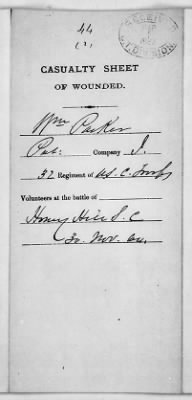 44
(2)
CASUALTY SHEET
OF WOUNDED.
Wm Parker
Pvt: Company I.
32 Regiment of U.S.C. Troops
Volunteers at the battle of
Honey Hill S.C
30. Nov. 64.